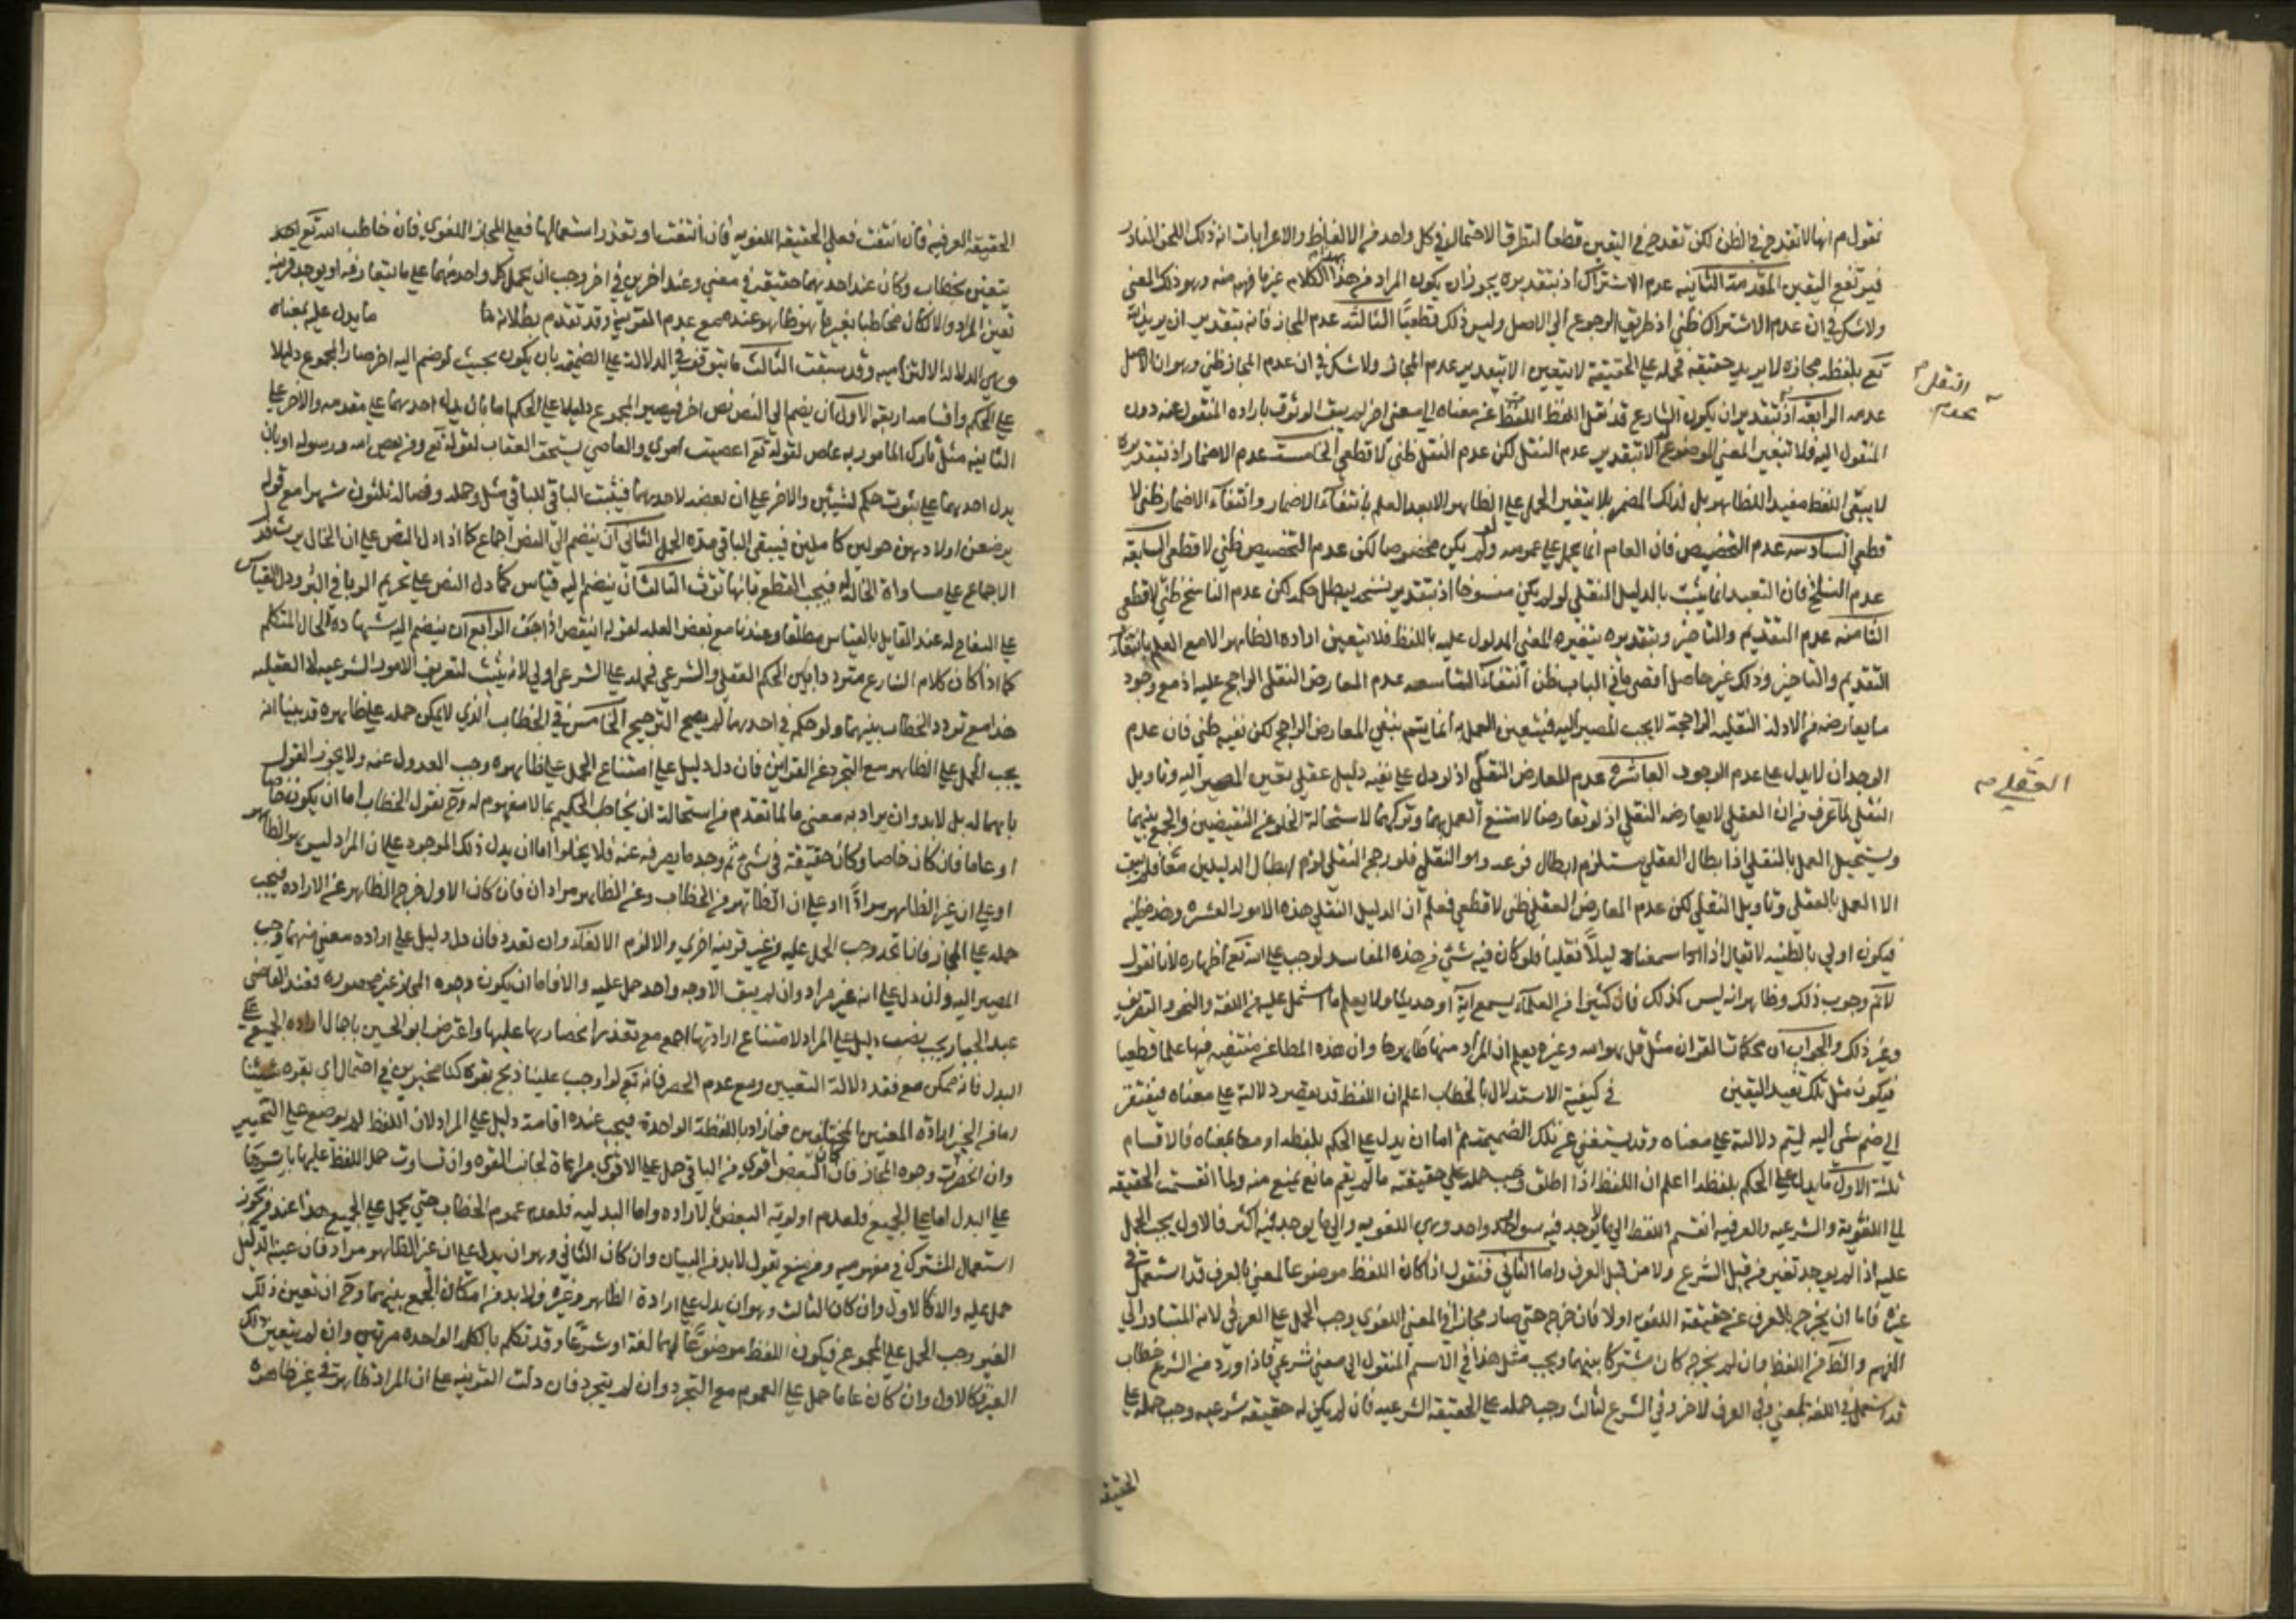 نقول م انها لا تقدح في الظن لكن تقدح في اليقين قطعا لتطرق الاحتمال في كل واحد من الالفاظ والاعرابات انه ذلك اللحن النادر
فيرتفع اليقين المقدمة الثانيه عدم الاشتراك اذ بتقديره يجوز ان يكون المراد من هذا الكلام غير ما فهم منه وهو ذلك المعنى
ولا شك في ان عدم الاشتراك ظني اذ طريقه الرجوع الى الاصل وليس ذلك قطعيا الثالثه عدم المجاز فانه بتقدير ان يريد الله
تع بلفظه مجازه لا يريد حقيقته فحمله على الحقيقة لا يتعين الا بتقدير عدم المجاز ولا شك في ان عدم المجاز ظني وهو ان الاصل
عدمه الرابعه اذ بتقدير ان يكون الشارع قد نقل اللفظ عن معناه الى معنى اخر لم يبق الوثوق باراده المنقول عنه دون
المنقول اليه فلا يتعين المعنى الموضوع الا بتقدير عدم النقل لكن عدم النقل ظني لا قطعي الخامسة عدم الاضمار اذ بتقديره
لا يبقى اللفظ مفيدا للظاهر بل لذلك المضمر فلا يتعين الحمل على الظاهر الا بعد العلم بانتفاء الاضمار وانتفاء الاضمار ظني لا
قطعي السادسه عدم التخصيص فان العام انما يحمل على عمومه لو لم يكن مخصوصا لكن عدم التخصيص ظني لا قطعي السابعه
عدم النسخ فان التعبد انما يثبت بالدليل النقلي لو لم يكن منسوخا اذ بتقدير نسخه يبطل حكمه لكن عدم الناسخ ظني لا قطعي
الثامنه عدم التقديم والتاخير وبتقديره يتغيره المعنى المدلول عليه باللفظ فلا يتعين اراده الظاهر الا مع العلم بانتفاء
التقديم والتاخير وذلك غير حاصل اقصى ما في الباب ظن انتفاءه التاسعه عدم المعارض النقلي الراجح عليه اذ مع وجود
ما يعارضه من الادلة النقليه الراجحة لا يجب المصير اليه فيتعين العمل به انما يتم بنفي المعارض الراجح لكن نفيه ظني فان عدم
الوجدان لا يدل على عدم الوجود العاشره عدم المعارض النقلي اذ لو دل على نفيه دليل عقلي يقين المصير اليه وتاويل
النقلي لما عرف من ان العقلي لا يعارضه النقلي اذ لو تعارضا لامتنع العمل بهما وتركهما لاستحالة الخلو عن النقيضين والجمع بينهما
ويستحيل العمل بالنقلي اذ ابطال العقلي يستلزم ابطال فرعه وهو النقلي فلو رجح النقلي لزم ابطال الدليلين معا فلم يبق
الا العمل بالعقلي وتاويل النقلي لكن عدم المعارض العقلي ظني لا قطعي فعلم ان الدليل النقلي هذه الامور العشره وهذه ظنيه
فيكون اولى بالظنيه لا تقال اذا سمعنا دليلا نقليا فلو كان فيه شئ من هذه المفاسد لوجب على الله تع اظهاره لانا نقول
لا نم وجوب ذلك وظاهر انه ليس كذلك فان كثيرا من العلماء يسمع اية او حديثا ولا يعلم ما اشتمل عليه من اللغة والنحو والتصريف
وغير ذلك والجواب ان محكمات القران مثل قل هو الله وغيره يعلم ان المراد منها ظاهرها وان هذه المطاعن منتفيه فيها علما قطعيا
فيكون مثل تلك تفيد اليقين في كيفية الاستدلال بالخطاب اعلم ان اللفظ قد يقصر دلالة على معناه فيفتقر
الى ضم شئ اليه ليتم دلالته على معناه وقد يستغني عن تلك الضميمة ثم اما ان يدل على الحكم بلفظه او معناه فالاقسام
ثلثة الاول ما يدل على الحكم بلفظه اعلم ان اللفظ اذا اطلق وجب حمله على حقيقته ما لم يقم مانع يمنع منه ولما انقسمت الحقيقه
الى اللغوية والشرعيه والعرفيه انقسم اللفظ الى ما لا يوجد فيه سوى واحد وهي اللغويه والى ما يوجد فيه اكثر فالاول يجب الحمل
عليه اذا لم يوجد تغير من قبل الشرع ولا من قبل العرف واما الثاني فنقول اذا كان اللفظ موضوعا لمعنى بالعرف قد استعمل في
غيره فاما ان يخرج بالعرف عن حقيقته اللغوية او لا فان خرج حتى صار مجازا في المعنى اللغوي وجب الحمل على العرفي لانه المتبادر الى
الفهم والظ من اللفظ وان لم يخرجه كان مشتركا بينهما ويجب مثل هذا في الاسم المنقول الى معنى شرعي فاذا ورد من الشرع خطاب
قد استعمل في اللغة لمعنى وفي العرف لاخر وفي الشرع لثالث وجب حمله على الحقيقة الشرعيه فان لم يكن له حقيقه شرعيه وجب حمله على
الحقيقه
النقلي
عدم
العقلي
الحقيقة العرفيه فان انتفت فعلى الحقيقه اللغويه فان انتفت او تعذر استعمالها فعلى المجاز اللغوي فان خاطب الله تع
بخطاب وكان عند احديهما حقيقة في معنى وعند اخرين في اخر وجب ان يحمل كل واحد منهما على ما يتعارفه او يوجد قرينه
تعين المراد والا لكان مخاطبا بغير ما هو ظاهر عندهم مع عدم القرينة وقد تقدم بطلانه ما يدل عليه بمعناه
وهي الدلاله الالتزاميه وقد سبقت الثالث ما يتوقف في الدلالة على الضميمه بان يكون بحيث لو ضم اليه اخر صار المجموع دليلا
على الحكم واقسامه اربعة الاول ان يضم الى النص نص اخر فيصير المجموع دليلا على الحكم اما بان يدل احدهما على مقدمه والاخر على
الثانيه مثل تارك المامور به عاص لقوله تع افعصيت امري والعاصي يستحق العقاب لقوله تع ومن يعص الله ورسوله او بان
يدل احدهما على ثبوت حكم لشيئين والاخر على ان بعضه لاحدهما فيثبت الباقي للباقي مثل وحمله وفصاله ثلثون شهرا مع قوله
يرضعن اولادهن حولين كاملين فيبقى الباقي مدة الحمل الثاني ان ينضم الى النص اجماع كما اذا دل النص على ان الخال يرث
الاجماع على مساواة الخالة له فيجب القطع بانها ترث الثالث ان ينضم اليه قياس كما دل النص على تحريم الربا في البر ودل القياس
على التفاح له عند القايل بالقياس مطلقا وعندنا مع بعض العله لقوله اينقص اذا جف الرابع ان ينضم اليه شهادة الحال المتكلم
كما اذا كان كلام الشارع مترددا بين الحكم العقلي والشرعي فحمله على الشرعي اولى لانه يثبت لتعريف الامور الشرعيه لا العقليه
هذا مع تردد الخطاب بينهما ولو حكم في احدهما لم يصح الترجيح الخامس في الخطاب الذي لا يمكن حمله على ظاهره قد بينا انه
يجب الحمل على الظاهر مع التجرد عن القرائن فان دل دليل على امتناع الحمل على ظاهره وجب العدول عنه ولا يجوز القول
باهماله بل لا بد وان يراد به معنى ما لما تقدم من استحالة ان يخاطب الحكيم بما لا مفهوم له وح نقول الخطاب اما ان يكون خاصا
او عاما فان كان خاصا وكان حقيقة في شئ ثم وجد ما يصرفه عنه فلا يخلوا اما ان يدل ذلك الموجود على ان المراد ليس هو الظاهر
او على ان غير الظاهر مراد او على ان الظاهر من الخطاب وغير الظاهر مرادان فان كان الاول خرج الظاهر عن الاراده فيجب
حمله على المجاز فان اتحد وجب الحمل عليه من غير قرينه اخرى والا لزم الالغاء وان تعدد فان دل دليل على اراده معنى منهما وجب
المصير اليه وان دل على انه غير مراد وان لم يبق الا وجه واحد حمل عليه والا فاما ان يكون وجوه المجاز غير محصوره فعند القاضي
عبد الجبار يجب نصب دليل على المراد لامتناع ارادتها اجمع مع تعذر انحصارها عليها واعترض ابو الحسين باحتمال اراده الجميع على
البدل فانه ممكن مع فقد دلالة التعيين ومع عدم الحصر فانه تع لو اوجب علينا ذبح بقره كنا مخيرين في اي بقره شئنا
اراده المعنيين المختلفين باللفظة الواحدة فيجب عنده اقامة دليل على المراد لان اللفظ لم يوضع على التخيير
وان انحصرت وجوه المجاز فان كان البعض اقوى من الباقي حمل على الاقوى مراعاة لجانب القوه وان تساوت حمل اللفظ عليها باسرها
على البدل اما على الجميع فلعدم اولويه البعض بالاراده واما البدليه فلعدم عموم الخطاب حتى يحمل على الجميع هذا عند من يجوز
استعمال المشترك في مفهوميه ومن منع يقول لا بد من البيان وان كان الثاني وهو ان يدل على ان غير الظاهر مراد فان عينه الدليل
حمل عليه والا كالاول وان كان الثالث وهو ان يدل على ارادة الظاهر وغيره فلا بد من امكان الجمع بينهما وح ان تعين ذلك
الغير وجب الحمل على المجموع فيكون اللفظ موضوعا لهما لغة او شرعا وقد تكلم بالكلمه الواحده مرتين وان لم يتعين ذلك
الغير كالاول وان كان عاما حمل على العموم مع التجرد وان لم يتجرد فان دلت القرينه على ان المراد ظاهره وغير ظاهره